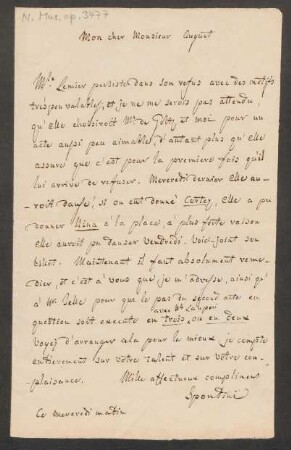 N. Mus. ep. 3477
Mon cher Monsieur Auguet
Mlle Lemier persiste dans son refus avec des motifs
très peu valables, et je ne me serois pas attendu
qu'elle choisiroit Mr. de et moi pour un
acte aussi peu aimable, d'autant plus qu'elle
assure que c'est pour la premiere fois qu'il
lui arrive de refuser. Mercredi dernier elle au-
roit dansé, si on eut donné Cortez, elle a pu
donner Nina à la place, à plus forte raison
elle auroit pu danser vendredi. Voici-joint son
billet. Maintenant il faut absolument reme-
dier, et c'est à vous que je m'adresse, ainsi qu'
à Mr. Telle pour que le pas du second acte en
question soit executé en trois, ou en deux
avec Mr.
voyez d'arranger cela pour le mieux, je compte
entierement sur votre talent et sur votre com-
plaisance. Mille affectueux complimens
Spontini
Ce mercredi matin